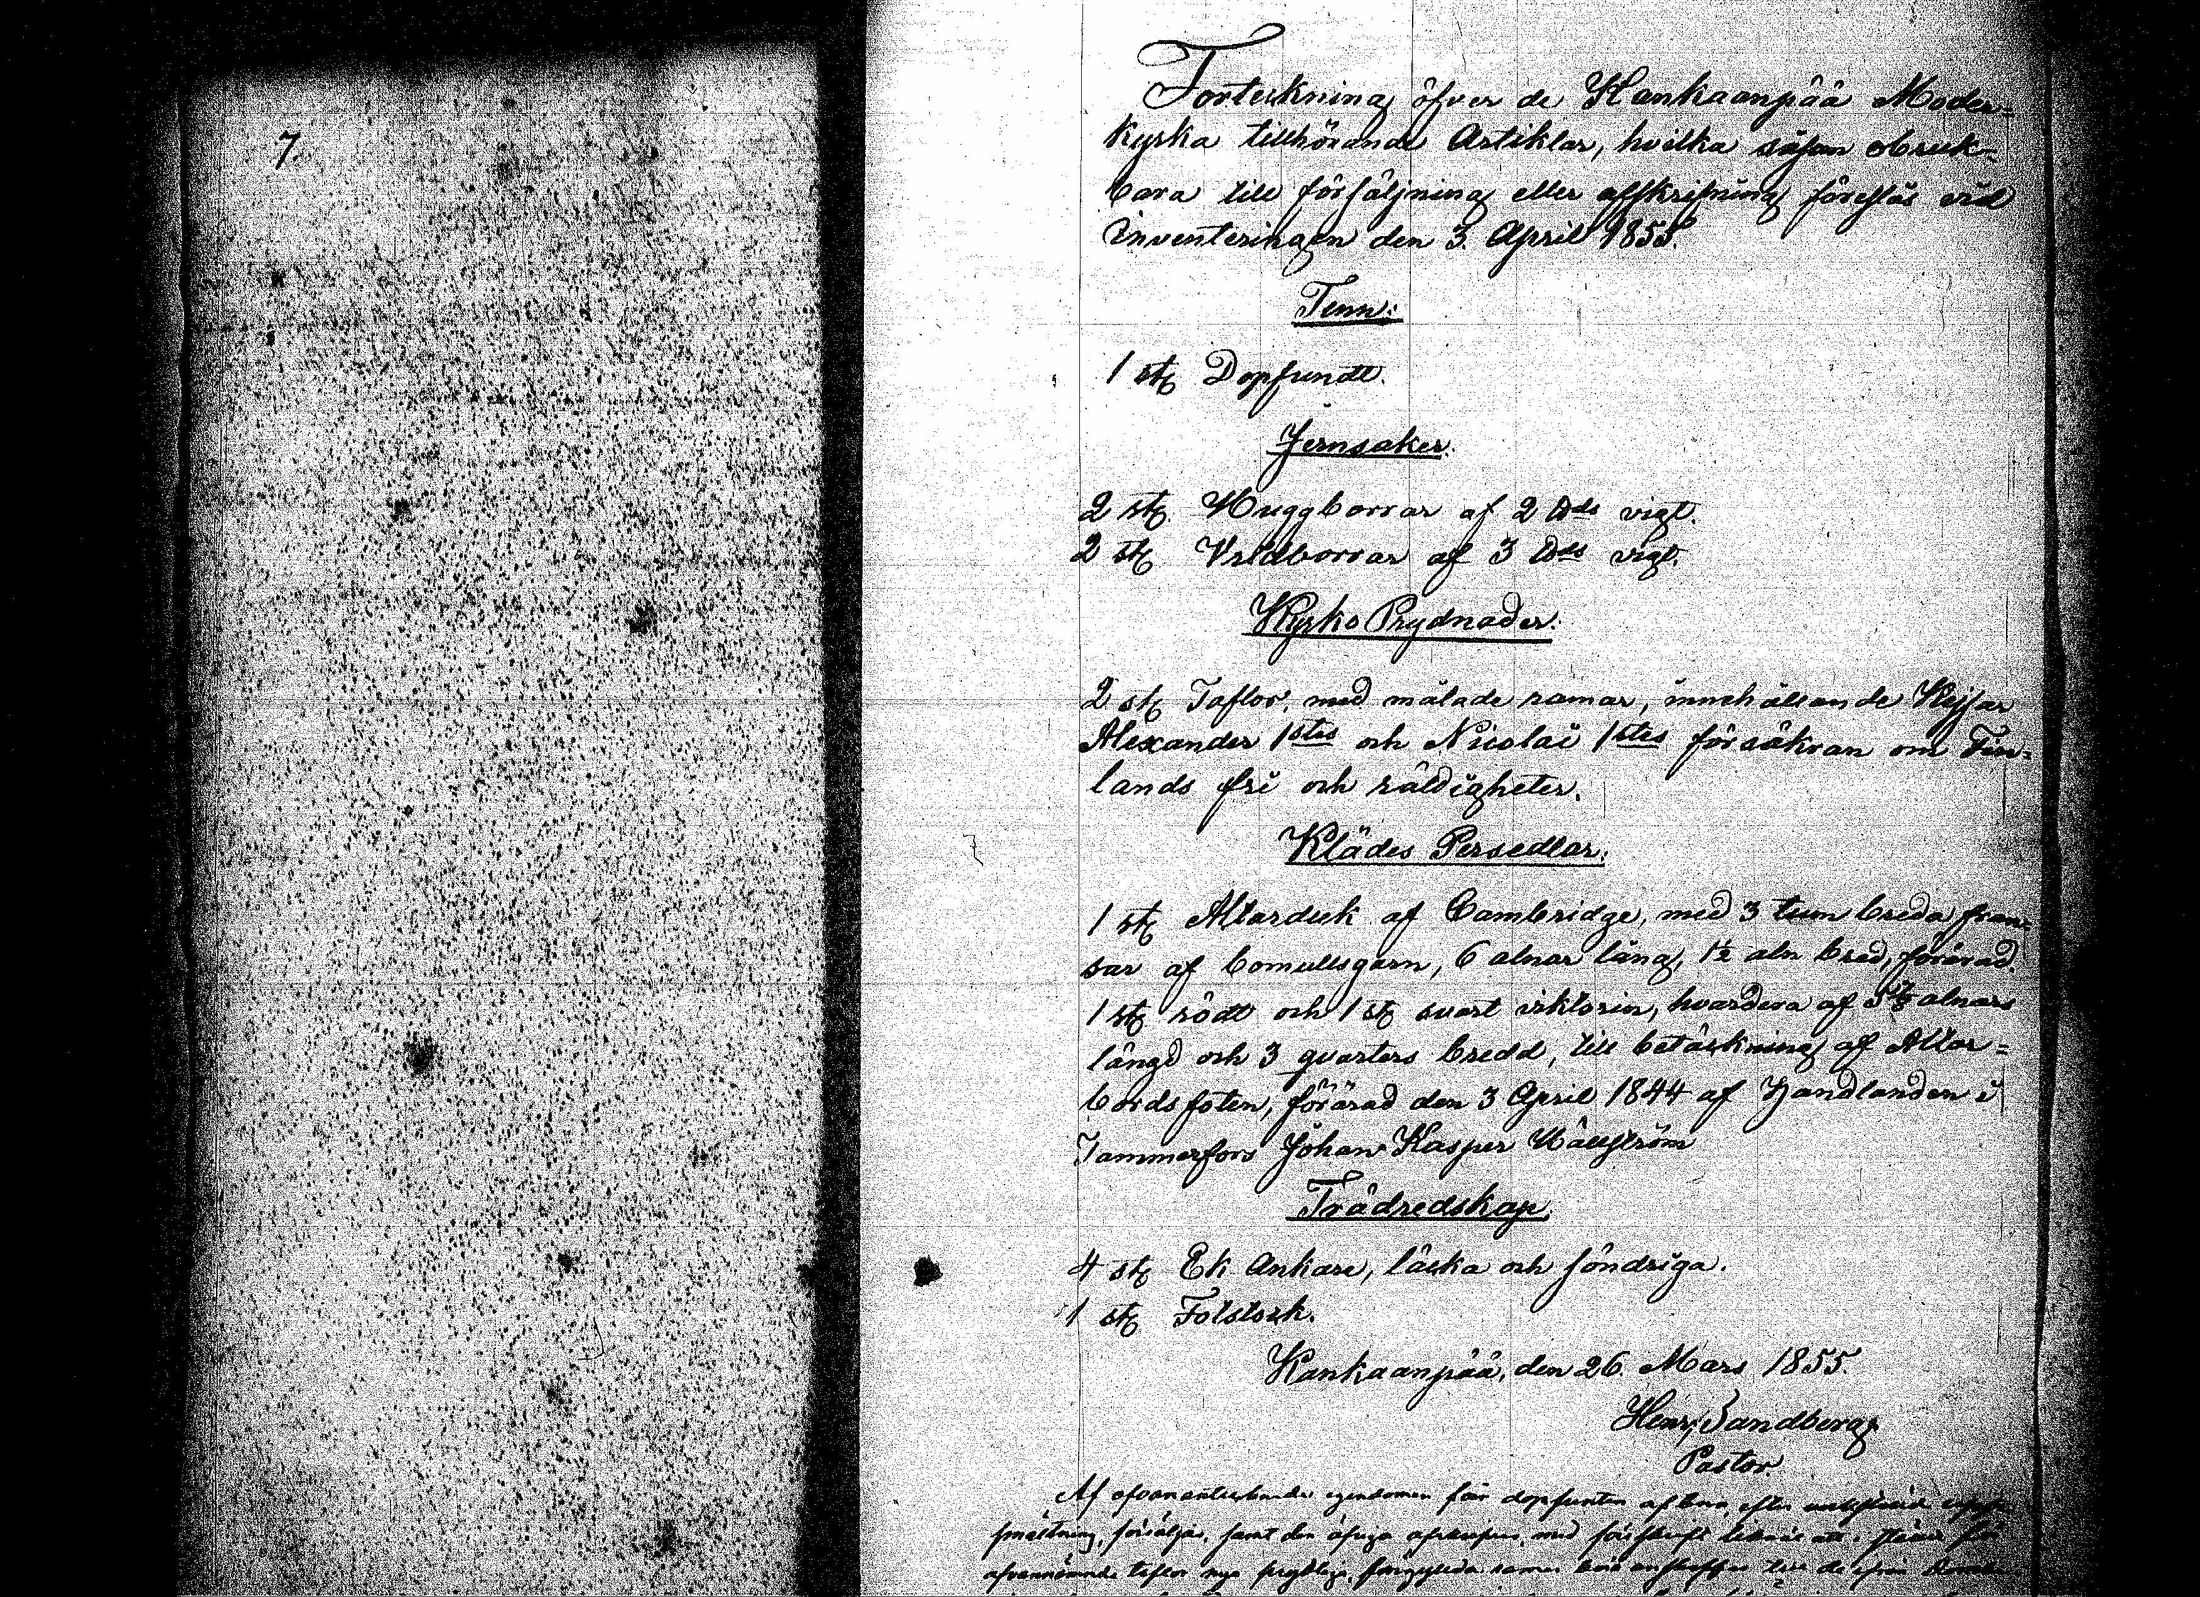 7.
Forteckning öfver de Kankaanpää Moder=
kyrka tillhörande Artiklar, hvilka såsom obruk=
bara till försäljning eller affskrifning föreslås vid
Inventeringen den 3. April 1855.
Tenn:
1 st. Dopfundt.
Jernsaker.
2 st. Huggborrar af 2 vigt.
2 st. Vridborrar af 3 vigt.
Kyrko Prydnader.
2 st. Taflor, med målade ramar, innehållande Kejsar
Alexander 1stes och Nicolai 1stes försäkran om Fin=
lands fri och rättigheter.
Klädes Persedlar.
1 st. Altarduk af Cambridge, med 3 tum breda fran=
sar af bomullsgarn, 6 alnar lång, 1½ aln bred, förärad.
1 st. rödt och 1 st. svart hvardera af alnars
längd och 3 qvarters bredd, till betäckning af Altar=
bordsfoten, förärad den 3 April 1844 af Handlanden i
Tammerfors Johan Kasper Hällström
Trädredskap.
4 st. Ek Ankare, läcka och söndriga.
1 st. Fotstock.
Kankaanpää, den 26. Mars 1855.
Henr. Sandberg
Pastor.
Af egendomen får dopfunten efter
smältning, försäljas, samt den öfriga med
ofvannämnde taflor nya förgyllda ramar